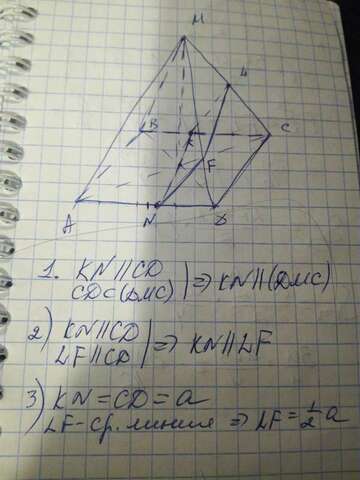 M
L
B
K
C
F
A
N
D
1. KN || CD
CD ⊂ (DMC) | ⇒ KN || (DMC)
2) KN || CD
LF || CD | ⇒ KN || LF
3) KN = CD = a
LF - ср. линия ⇒ LF = 1/2 a